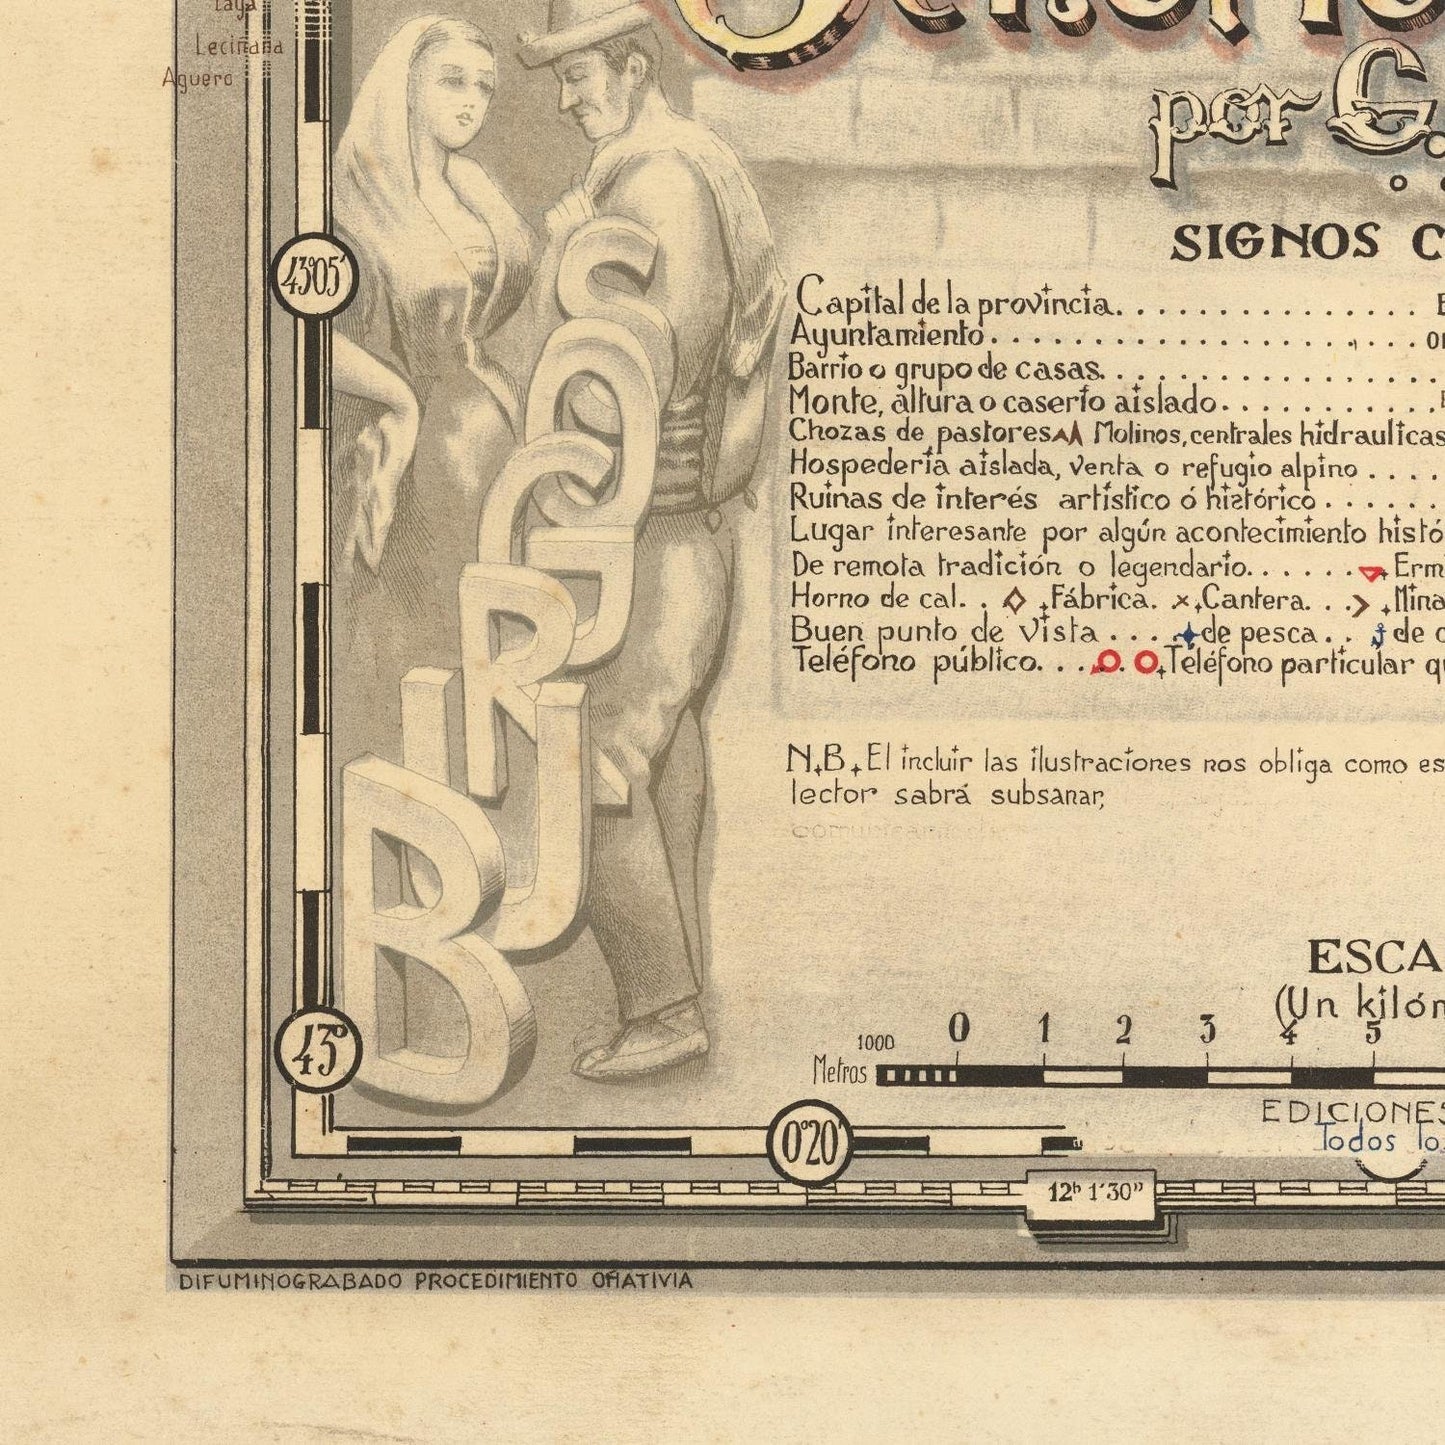 Laya
Leciñana
Aguero
Señorío
por G.
SIGNOS C
43°05'
Capital de la provincia
Ayuntamiento
Barrio o grupo de casas
Monte, altura o caserío aislado
Chozas de pastores Molinos, centrales hidraulicas
Hospedería aislada, venta o refugio alpino
Ruinas de interés artístico ó histórico
Lugar interesante por algún acontecimiento histó
De remota tradición o legendario Erm
Horno de cal Fábrica Cantera Mina
Buen punto de vista de pesca de c
Teléfono público Teléfono particular qu
BURGOS
N.B. El incluir las ilustraciones nos obliga como es
lector sabrá subsanar,
ESCA
(Un kilóm
43°
1000 0 1 2 3 4 5
Metros
EDICIONES
Todos lo
0°20'
12ʰ 1'30"
DIFUMINOGRABADO PROCEDIMIENTO OÑATIVIA